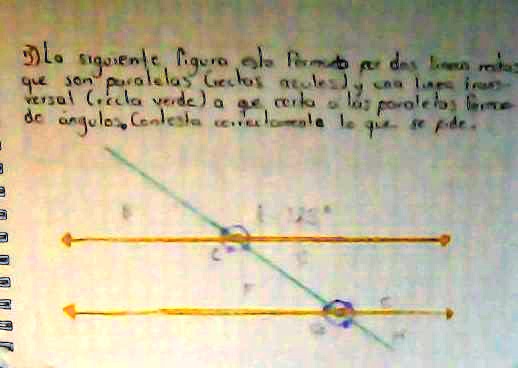 La siguiente figura esta formada por dos lineas rectas
que son paralelas (rectas azules) y una linea trans-
versal (recta verde) a que corta a las paralelas forma
de angulos. Contesta correctamente lo que se pide.
B
125°
C
E
F
E
G
H